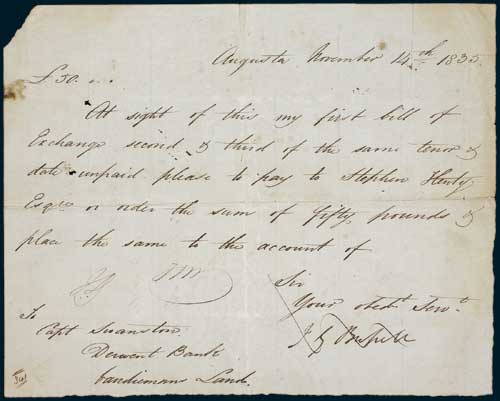 Augusta November 14th 1835
£50. ...
At sight of this my first bill of
Exchange second & third of the same tenor &
date unpaid please to pay to Stephen Henty
Esqre or order the sum of fifty pounds &
place the same to the account of
Sir
Your obedt. Servt.
J G Bussell
To
Capt Swanston
Derwent Bank
Vandiemans Land.